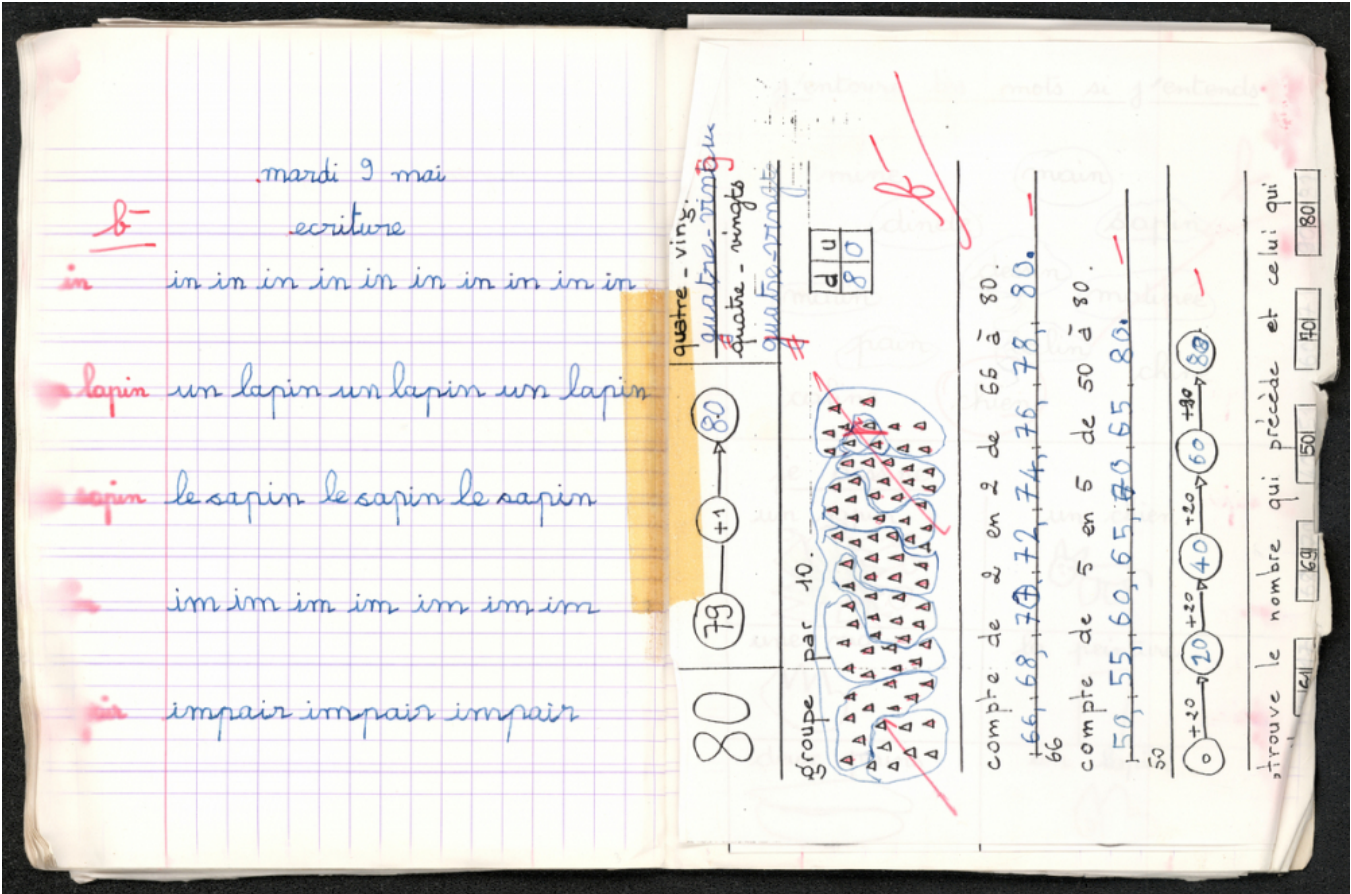 mardi 9 mai
b
ecriture
in in in in in in in in in in in
lapin un lapin un lapin un lapin
sapin le sapin le sapin le sapin
im im im im im im im
air impair impair impair
80
79 +1 80
quatre-ving
quatre-vingts
quatre-vingts
groupe par 10.
d u
8 0
B
compte de 2 en 2 de 66 à 80
66, 68, 70, 72, 74, 76, 78, 80.
66
compte de 5 en 5 de 50 à 80.
50, 55, 60, 65, 70 65 80.
50
0 +20 20 +20 40 +20 60 80
trouve le nombre qui précède et celui qui
69 50 70 80
j'entoure les mots si j'entends